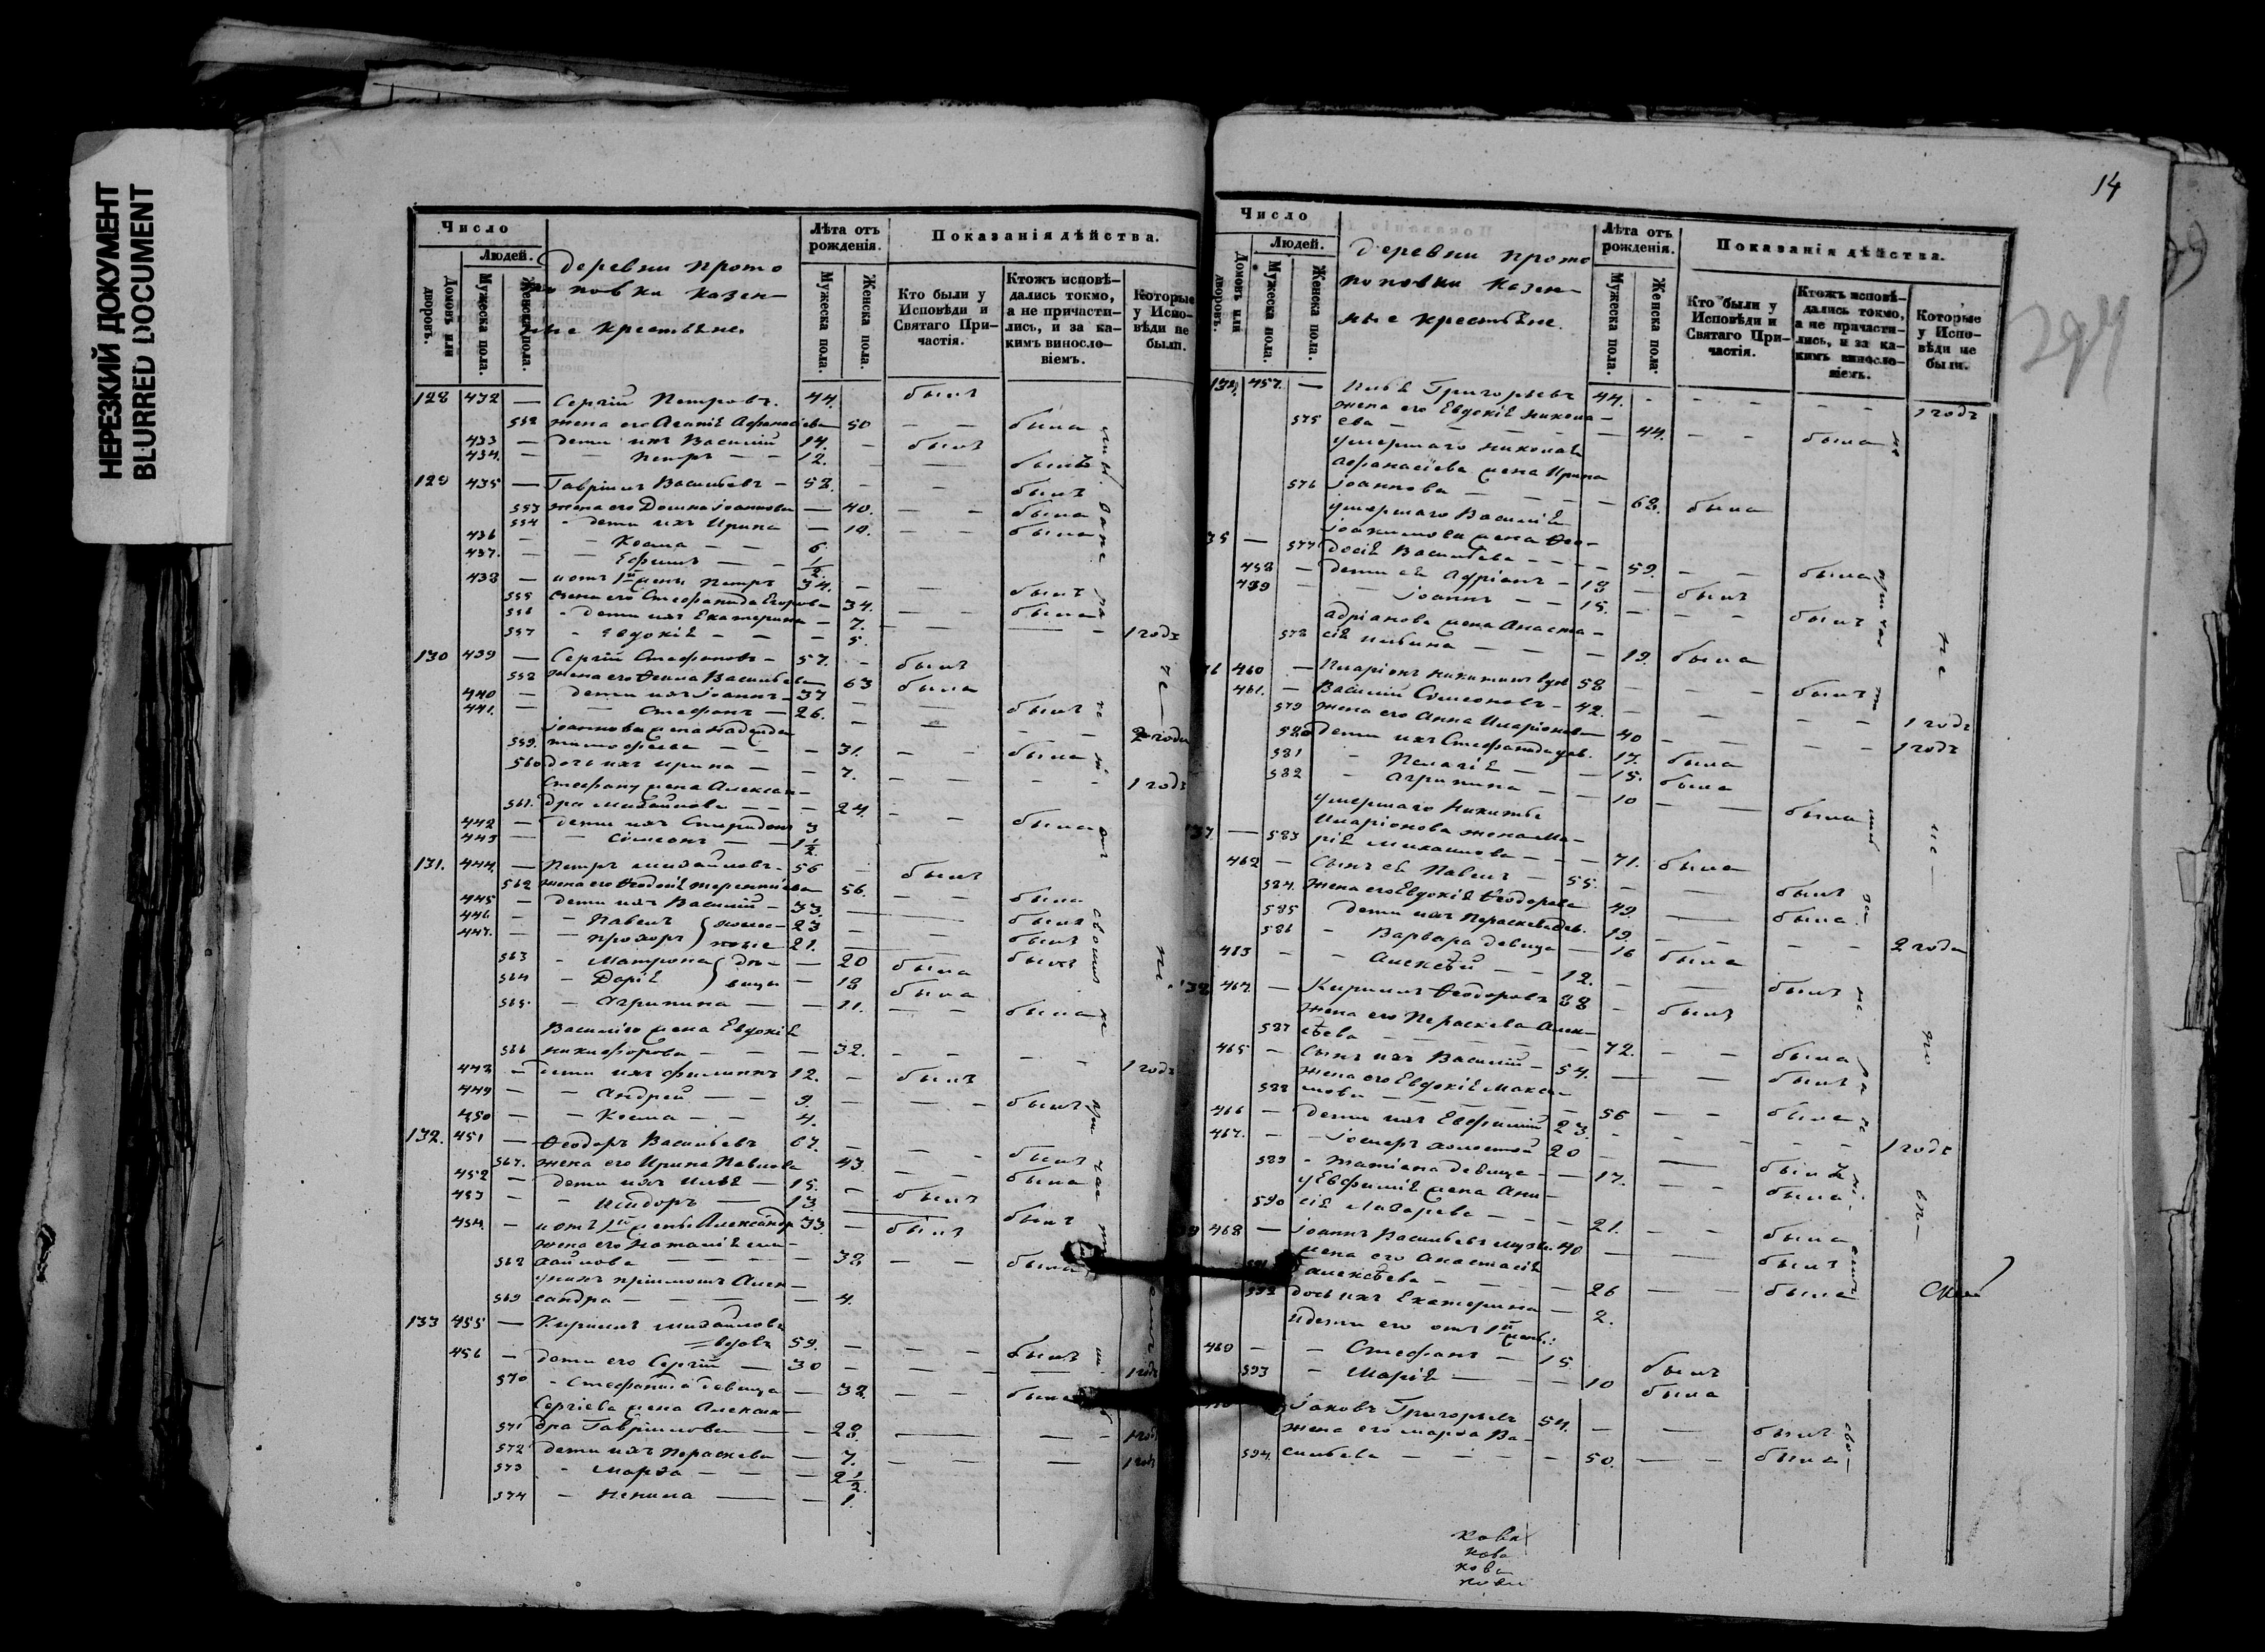 НЕРЕЗКИЙ ДОКУМЕНТ
BLURRED DOCUMENT
Число
Людей.
Домовъ или дворовъ.
Мужеска пола.
Женска пола.
деревни Прото
поповки казен-
ные крестьяне.
Лѣта отъ рожденія.
Мужеска пола.
Женска пола.
Показанія дѣйства.
Кто были у Исповѣди и Святаго При-частія.
Ктожъ исповѣ-дались токмо, а не причасти-лись, и за ка-кимъ винносло-віемъ.
Которые у Испо-вѣди не были.
128 432 — Сергій Петровъ. 44. былъ
552 жена его Агапія Афанасіева 50 — — была
433 — дети ихъ Василій 14. — былъ
434. — — Петръ — — 12. — былъ
129 435 — Гавріилъ Васильевъ — 52. — — былъ
553 жена его Домна Іоаннова — 40. — — была
554 - дети ихъ Ирина — 10. — — была
436 — — Косма — — 6
437. — — Ефимъ — — 1/2.
438 — и отъ 1й жены Петръ 34. — — былъ
555 жена его Стефанида Егорова 34. — — была
556 - дети ихъ Екатерина — 7. —
557 - Евдокія — — — 5. — 1 годъ
130 439 — Сергій Стефановъ — 57. — былъ
558 жена его Ѳекла Васильева 63 была
440 — дети ихъ Іоаннъ — 37 — — былъ
441. — — Стефанъ — 26. — — — 2 года
Іоаннова жена Надежда
559. Тимофеева — — — 31. — — была
560 дочь ихъ Ирина — — 7. — — — 1 годъ
Стефану жена Алексан-
561. дра Михайлова — — — 24. — — была
442 — дети ихъ Спиридонъ 3
443 — — Сѵмеонъ — — 1 1/2.
131. 444. — Петръ Михайловъ — 56 — былъ
562 жена его Ѳеодосія Терентіева 56. — — была
445 — дети ихъ Василій — 33. — былъ
446 — — Павелъ холос- 23 — — былъ
447. — — Прохоръ тые 21. — былъ
563 - Матрона де- — 20 была
564 - Дарія вицы — 18 была
565. - Агрипина — — 11. — — была
Василіева жена Евдокія
566 Никифорова — — — 32. — — — 1 годъ
448 — дети ихъ Филиппъ 12. — былъ
449 — — Андрей — — 9. — — былъ
450 — — Косма — — 4.
132. 451 — Ѳеодоръ Васильевъ 67. — — былъ
567. жена его Ирина Павлова 43. — — была
452 — дети ихъ Илья — 15. — былъ
453 — — Исидоръ — 13. — былъ
454. — и отъ 1й жены Александръ 33. — былъ
жена его Наталія Ми-
568 хайлова — — — — 38 — — была
у нихъ пріимышъ Алек-
569 сандра — — — — 4.
133 455 — Кириллъ Михайловъ
вдовъ 59. — — — былъ
456 — дети его Сергій — 30 — — — 1 годъ
570 - Стефанида девица — 32. — — была
Сергіева жена Алексан-
571 дра Гавриилова — — 28. — — 1 годъ
572 дети ихъ Параскева — 7. — — 1 годъ
573 - Марѳа — — — 2 1/2.
574 - Ненила — — 1.
14
294
Число
Людей.
Домовъ или дворовъ.
Мужеска пола.
Женска пола.
деревни Прото
поповки казен-
ные крестьяне.
Лѣта отъ рожденія.
Мужеска пола.
Женска пола.
Показанія дѣйства.
Кто были у Исповѣди и Святаго При-частія.
Ктожъ исповѣ-дались токмо, а не причасти-лись, и за ка-кимъ винносло-віемъ.
Которые у Испо-вѣди не были.
134. 457. — Илья Григорьевъ 44. — — — 1 годъ
жена его Евдокія Никола-
575 ева — — — 44. — — была
умершаго Николая
Афанасіева жена Ирина
576 Іоаннова — — — 62. была
умершаго Василія
Іоакимова жена Ѳео-
35 — 577 досія Васильева — — — 59. — — была
458 — дети ея Адріанъ — 18 — былъ
459 — Іоаннъ — — 15. — — былъ
Адріанова жена Анаста-
578 сія Ильина — — — 19. была
36 460 — Иларіонъ Никитинъ вдов 58 — — былъ
461. — Василій Симеоновъ — 42. — — 1 годъ
579 жена его Анна Иларіонова 40 — — 1 годъ
580 дети ихъ Стефанида дев. 17. была
581 - Пелагія — — 15. была
582 - Агрипина — — 10 — — была
умершаго Никиты
Иларіонова жена Ма-
137. — 583 рія Михаилова — — — 71. была
462 — сынъ ея Павелъ — 55. — — былъ
584. жена его Евдокія Ѳеодорова 49. — была
585 дети ихъ Параскева дев. 19. — — 2 года
586 - Варвара девица — 16 была
463 — — Алексѣй — — 12. — — былъ
138 464. — Кириллъ Ѳеодоровъ 88 — былъ
жена его Параскева Алек-
587 сѣева — — — — 72. — — была
465 — сынъ ихъ Василій — 54. — — былъ
жена его Евдокія Макси-
588 мова — — — — 56 — — была
466 — дети ихъ Евфимій 23. — — — 1 годъ
467. — - Іосифъ холостой 20 — — былъ
589 - Татіана девица — 17. — — была
у Евфимія жена Ани-
590 сія Лазарева — — — 21. — — была
39 468 — Іоаннъ Васильевъ 40 — — былъ
жена его Анастасія
591 Алексѣева — — — 26 — — была
592 дочь ихъ Екатерина — 2.
и дети его отъ 1й жены:
469 — - Стефанъ — 15. былъ
593 - Марія — — — 10 была
Іаковъ Григорьевъ 54. — — былъ
жена его Марѳа Ва-
594. сильева — — — 50. — — была